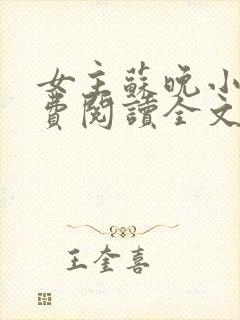 女主蘇晚小
費閱讀全文
王奎喜